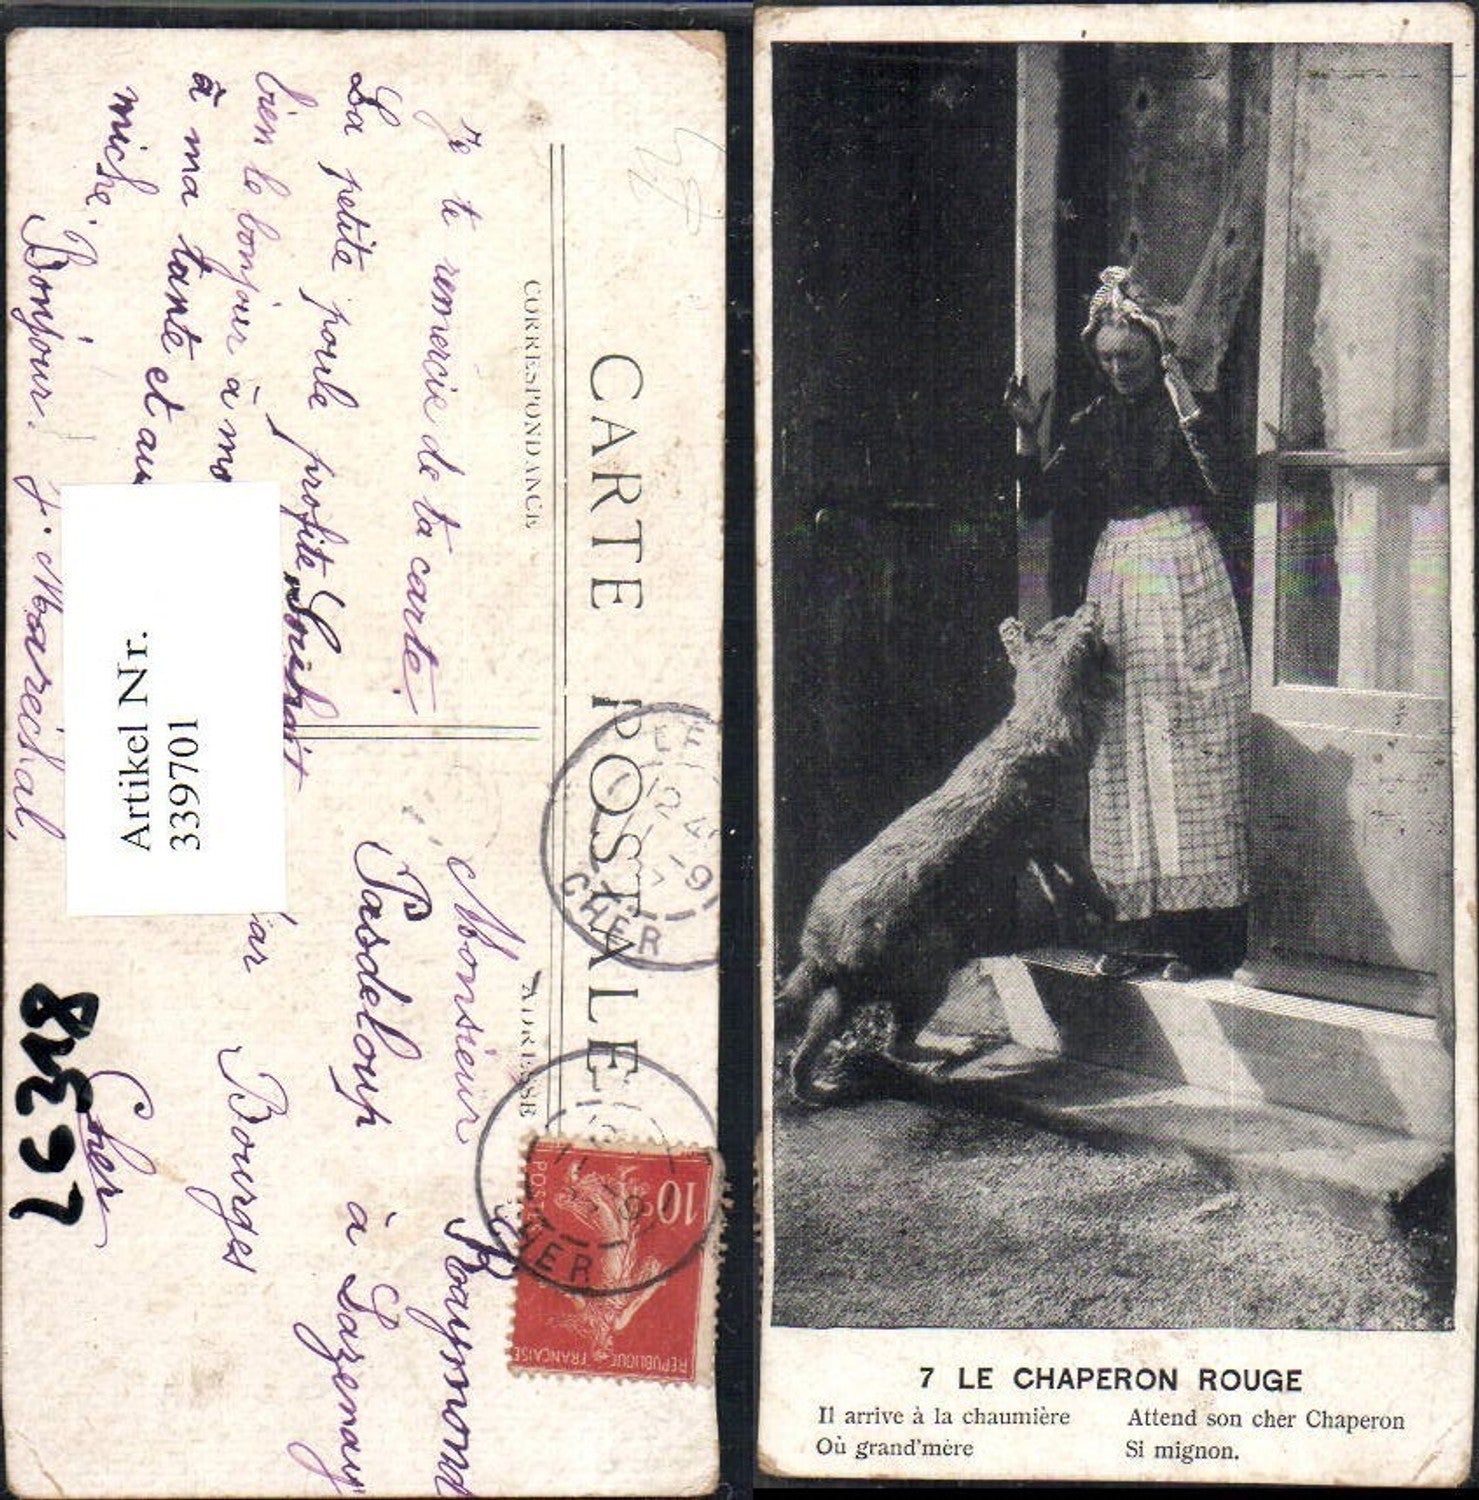 CARTE POSTALE
CORRESPONDANCE
ADRESSE
Je te remercie de ta carte.
La petite poule profite
bien le bonjour à mo
à ma tante et au
miche.
Bonjour.
J. Marechal,
Monsieur Raymond
Pasdeloup à Lazenay
par Bourges
Cher
Artikel Nr.
339701
LC318
24
CHER
CHER
10c
POSTES
REPUBLIQUE FRANÇAISE
7 LE CHAPERON ROUGE
Il arrive à la chaumière
Où grand'mère
Attend son cher Chaperon
Si mignon.